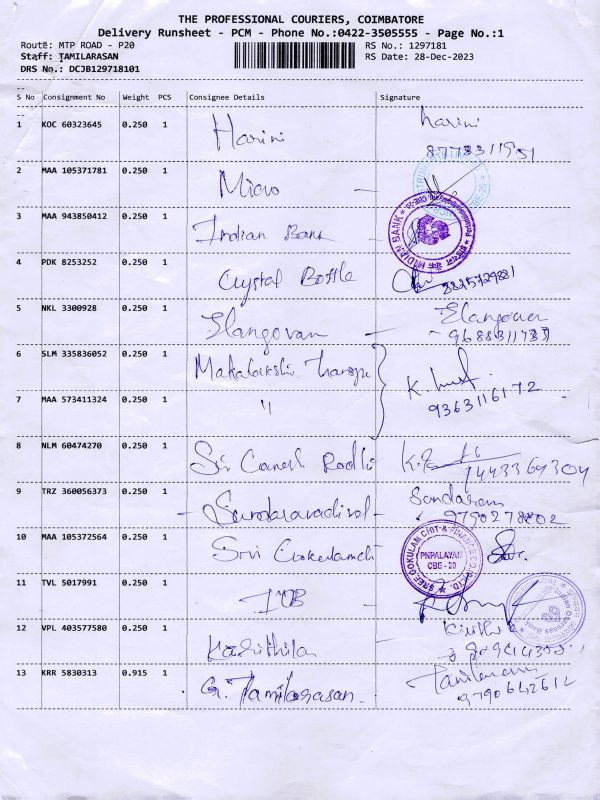 THE PROFESSIONAL COURIERS, COIMBATORE
Delivery Runsheet - PCM - Phone No.:0422-3505555 - Page No.:1
Route: MTP ROAD - P20
RS No.: 1297181
Staff: TAMILARASAN
RS Date: 28-Dec-2023
DRS No.: DCJB129718101
S No Consignment No Weight PCS Consignee Details Signature
1 KOC 60323645 0.250 1 Harini Harini
2 MAA 105371781 0.250 1 Micro
3 MAA 943850412 0.250 1 Indian Bank
INDIAN BANK
4 PDK 8253252 0.250 1 Crystal Bottle
5 NKL 3300928 0.250 1 Elangovan - Elangovan
6 SLM 335836052 0.250 1
7 MAA 573411324 0.250 1 "
9363116172
8 NLM 60474270 0.250 1 Sri Ganesh
9 TRZ 360056373 0.250 1 - Sundaravadivel - Sundaram
10 MAA 105372564 0.250 1 Sri
SREE GOKULAM CHIT & FINANCE CO. (P) LTD.
PNPALAYAM
CBE - 20
11 TVL 5017991 0.250 1 IOB -
12 VPL 403577580 0.250 1
13 KRR 5830313 0.915 1 G. Tamilarasan.
9790642612